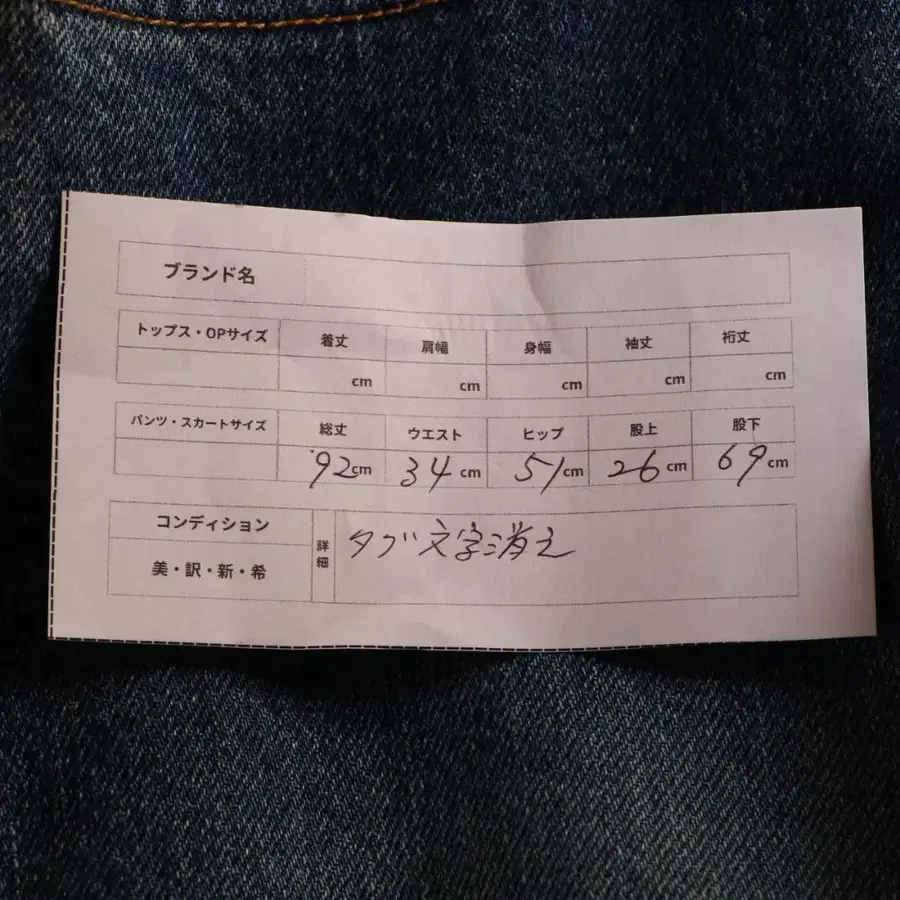 ブランド名
トップス・OPサイズ 着丈 肩幅 身幅 袖丈 裄丈
cm cm cm cm cm
パンツ・スカートサイズ 総丈 ウエスト ヒップ 股上 股下
92cm 34cm 51cm 26cm 69cm
コンディション
詳細 タブ文字消え
美・訳・新・希